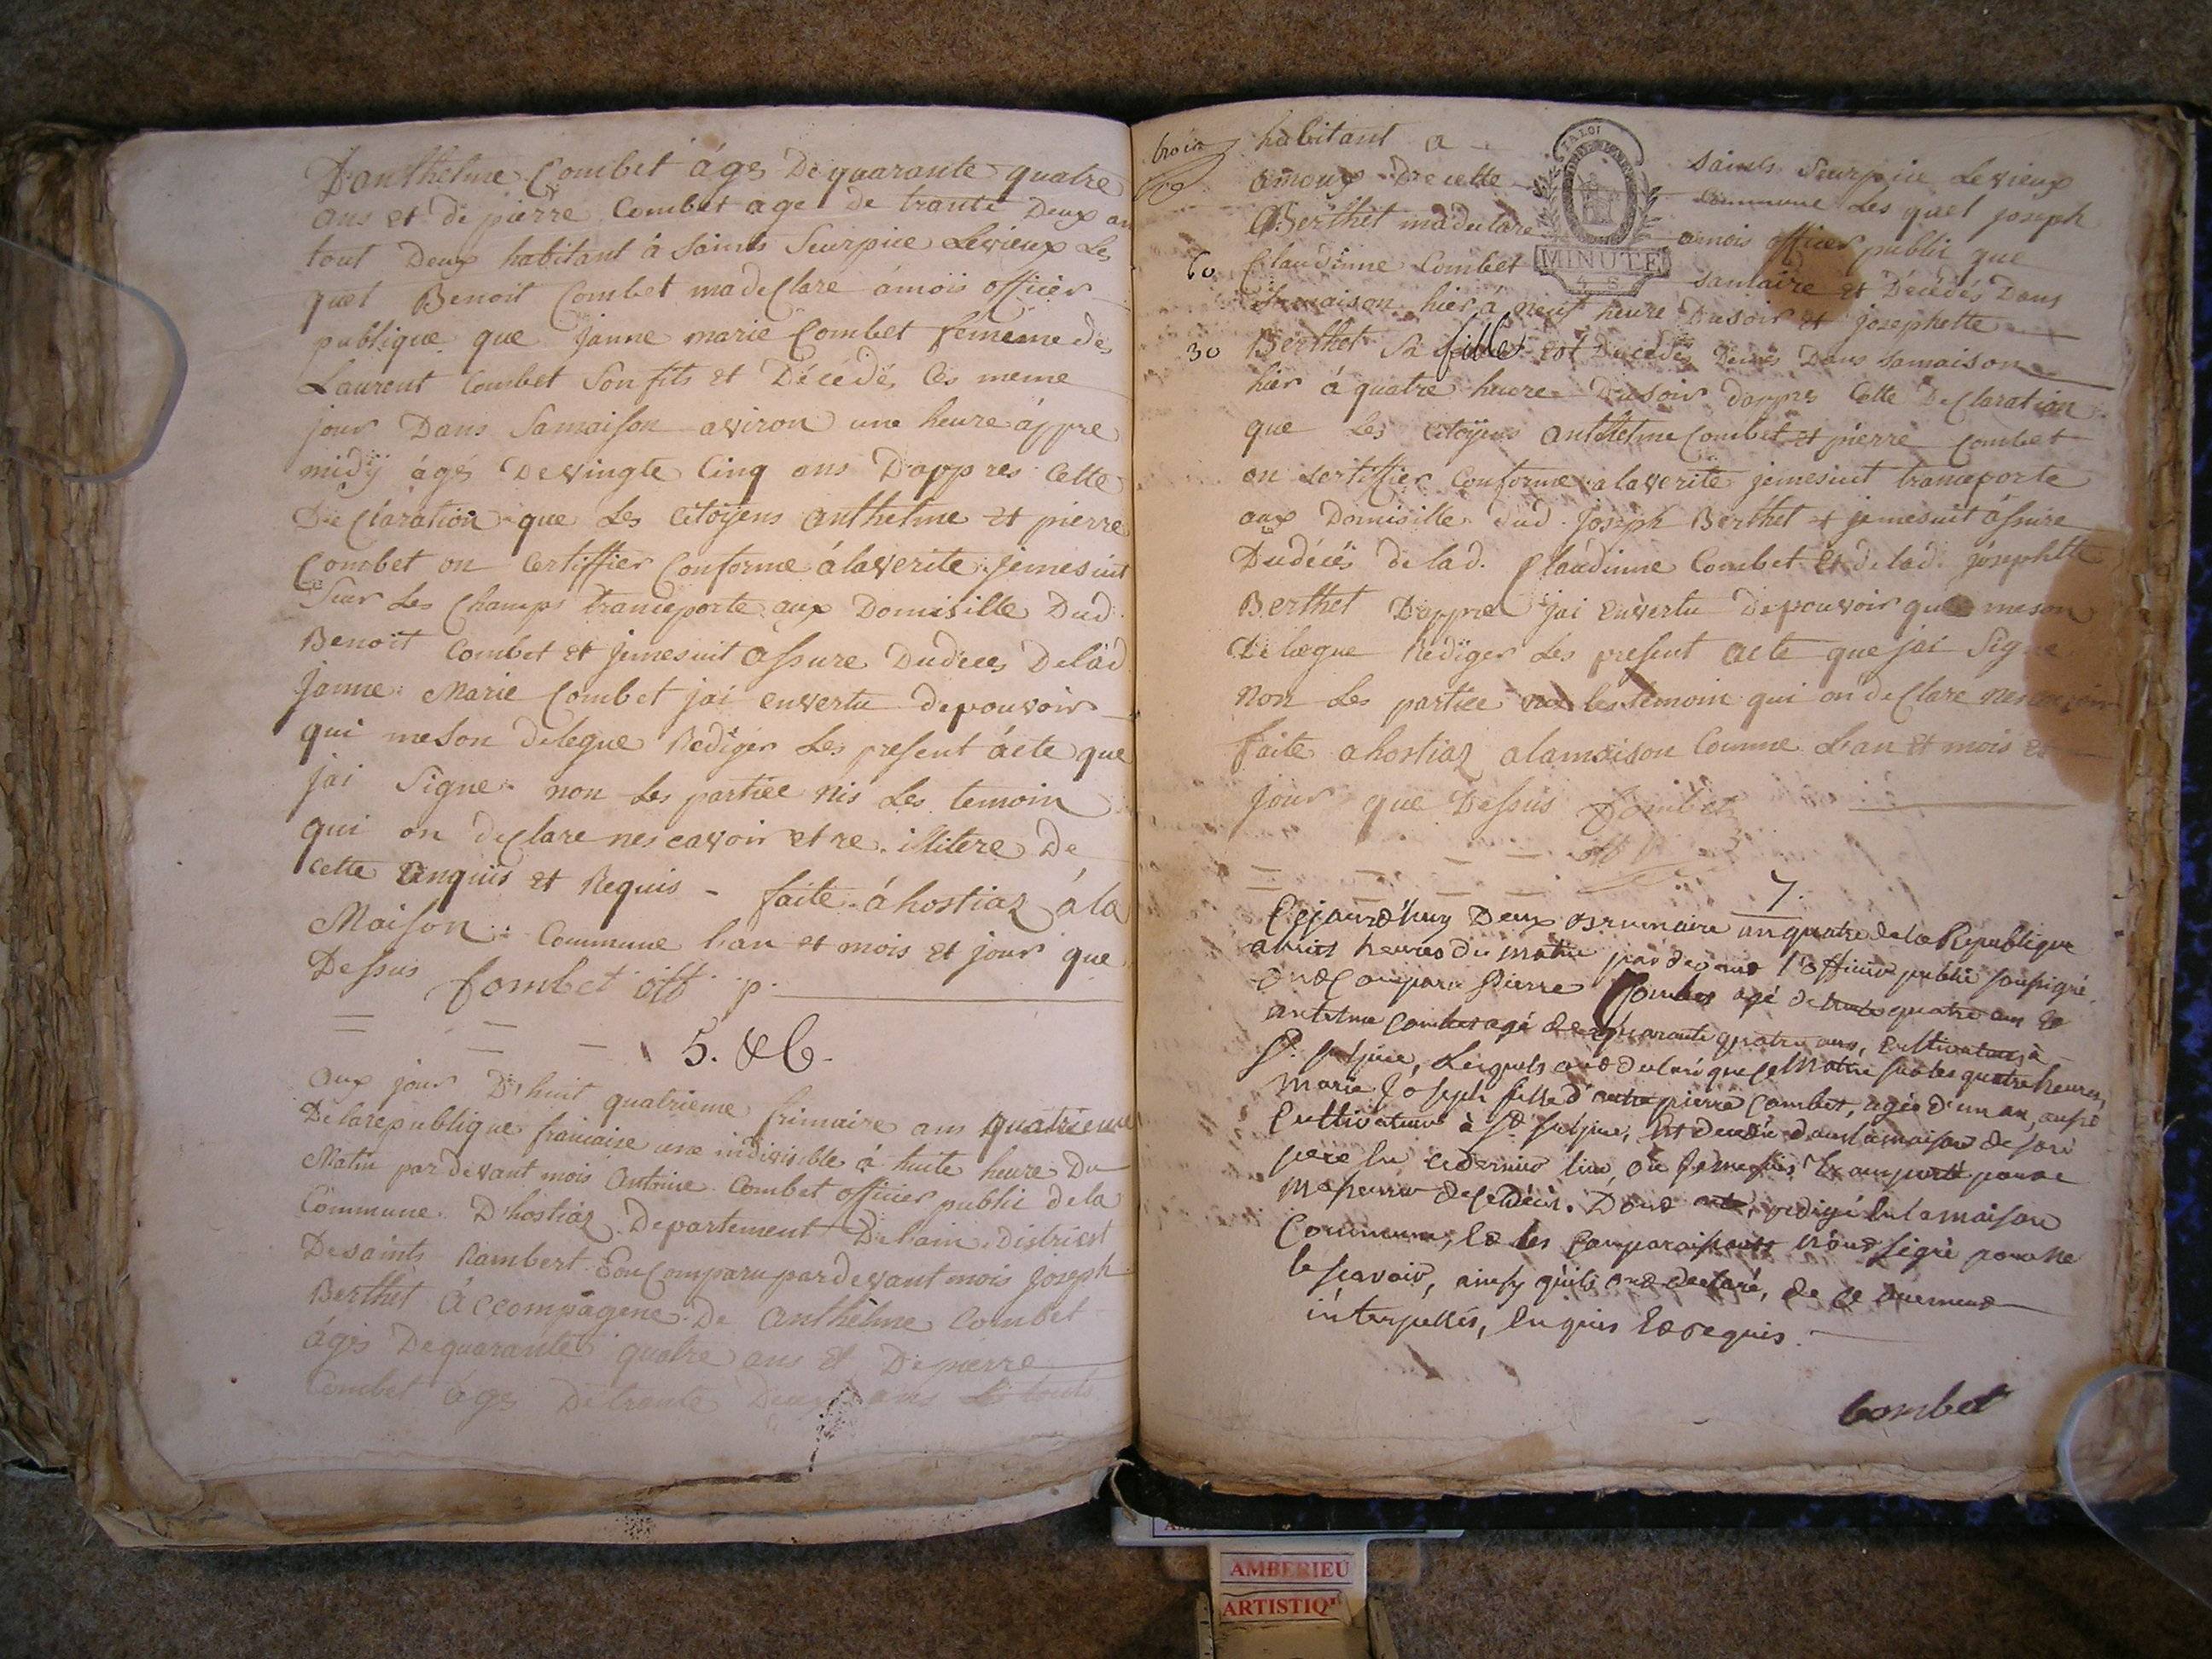 Danthelme Combet ágés De quarante quatre
ans et de pierre Combet age de trante Deux an
tout Deux habitant à Saints Seurpice Levieux Les
quel Benoit Combet madeClare ámois officier
publique que Janne marie Combet fememe de
Laurent Combet Son fils et Décédés les meme
jour Dans Samaison aviron une heure áppre
midÿ ágés Devingte Cinq ans Dappres Cette
DeClaration que Les Citoÿens anthelme et pierre
Combet on Certiffier Conforme álaverite jemesuit
Seur Les Champs tranceporte aux Domisille Dud.
Benoit Combet et jemesuit assure Dudeces Delad
Janne Marie Combet jai envertu depouvoir
qui meson delegue Rediger Les present ácte que
jai Signe non Les partiee nis Les temoin
qui on deClare nescavoir etre illitere De
cette enquis et Requis - faite áhostiaz ála
Maison Commune lan et mois et jour que
Dessus Combet off. p.
5. & 6.
aux jour Dhuit quatrieme frimaire ans quatrieme
De larepublique francaise une indivisible á huite heure Du
Matin pardevant mois Antoine Combet officier public dela
Commune Dhostiaz Departement Delain District
Desaints Rambert Son Comparu pardevant mois Joseph
Berthet áccompagene De Anthelme Combet
ágés Dequarante quatre ans et Depierre
Combet ages Detrante Deux ans Les touts
troix habitant a saints Seurpice Levieux
amoux De cette Commune Les quel joseph
Berthet madeclare amois officier public que
60 Claudinne Combet santaire et Décédés Dans
samaison hier á neuf heure Dusoir et josephette
30 Berthet Sa fille est Décédés Dans samaison
hier á quatre heure Dusoir dappres Cette DeClaration
que Les Citoÿens anthelme Combet et pierre Combet
on Certiffier Conforme alaverite jemesuit tranceporte
aux Domisille dud. joseph Berthet et jemesuit assure
Dudécés delad. Claudinne Combet et delad. josephtte
Berthet Dappre jai envertu depouvoir qui meson
delegue Rediger Les present acte que jai Signe
non Les partiee les temoin qui on deClare
faite ahostiaz alamaison Comune Lan et mois et
jour que Dessus Combet
off
7.
Cejourd'huy Deux brumaire an quatre de la Republique
a huit heures du matin pardevant l'officier public soussigné
ont Comparu pierre Combet agé de trente quatre ans et
antelme Combet agé de quarante quatre ans, Cultivateurs à
St. sulpice, Lesquels ont declaré que ce matin sur les quatre heures,
Marie Joseph fille d'autre pierre Combet, agée d'un an, aussi
Cultivateur à St. sulpice, est decedée dans la maison de son
pere au dernier lieu, où je me suis transporté pour
m'assurer de ce décès. Dont acte, redigé en la maison
Commune, et les Comparaissants n'ont signé pour ne
le scavoir, ainsy qu'ils ont declaré, de ce duement
interpellés, enquis et requis.
Combet
LA LOI
MINUTE
AMBERIEU
ARTISTIQ